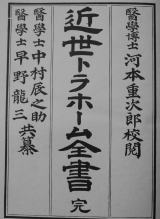 醫學博士 河本重次郎校閲
近世トラホーム全書 完
醫學士 中村辰之助
醫學士 早野龍三 共纂